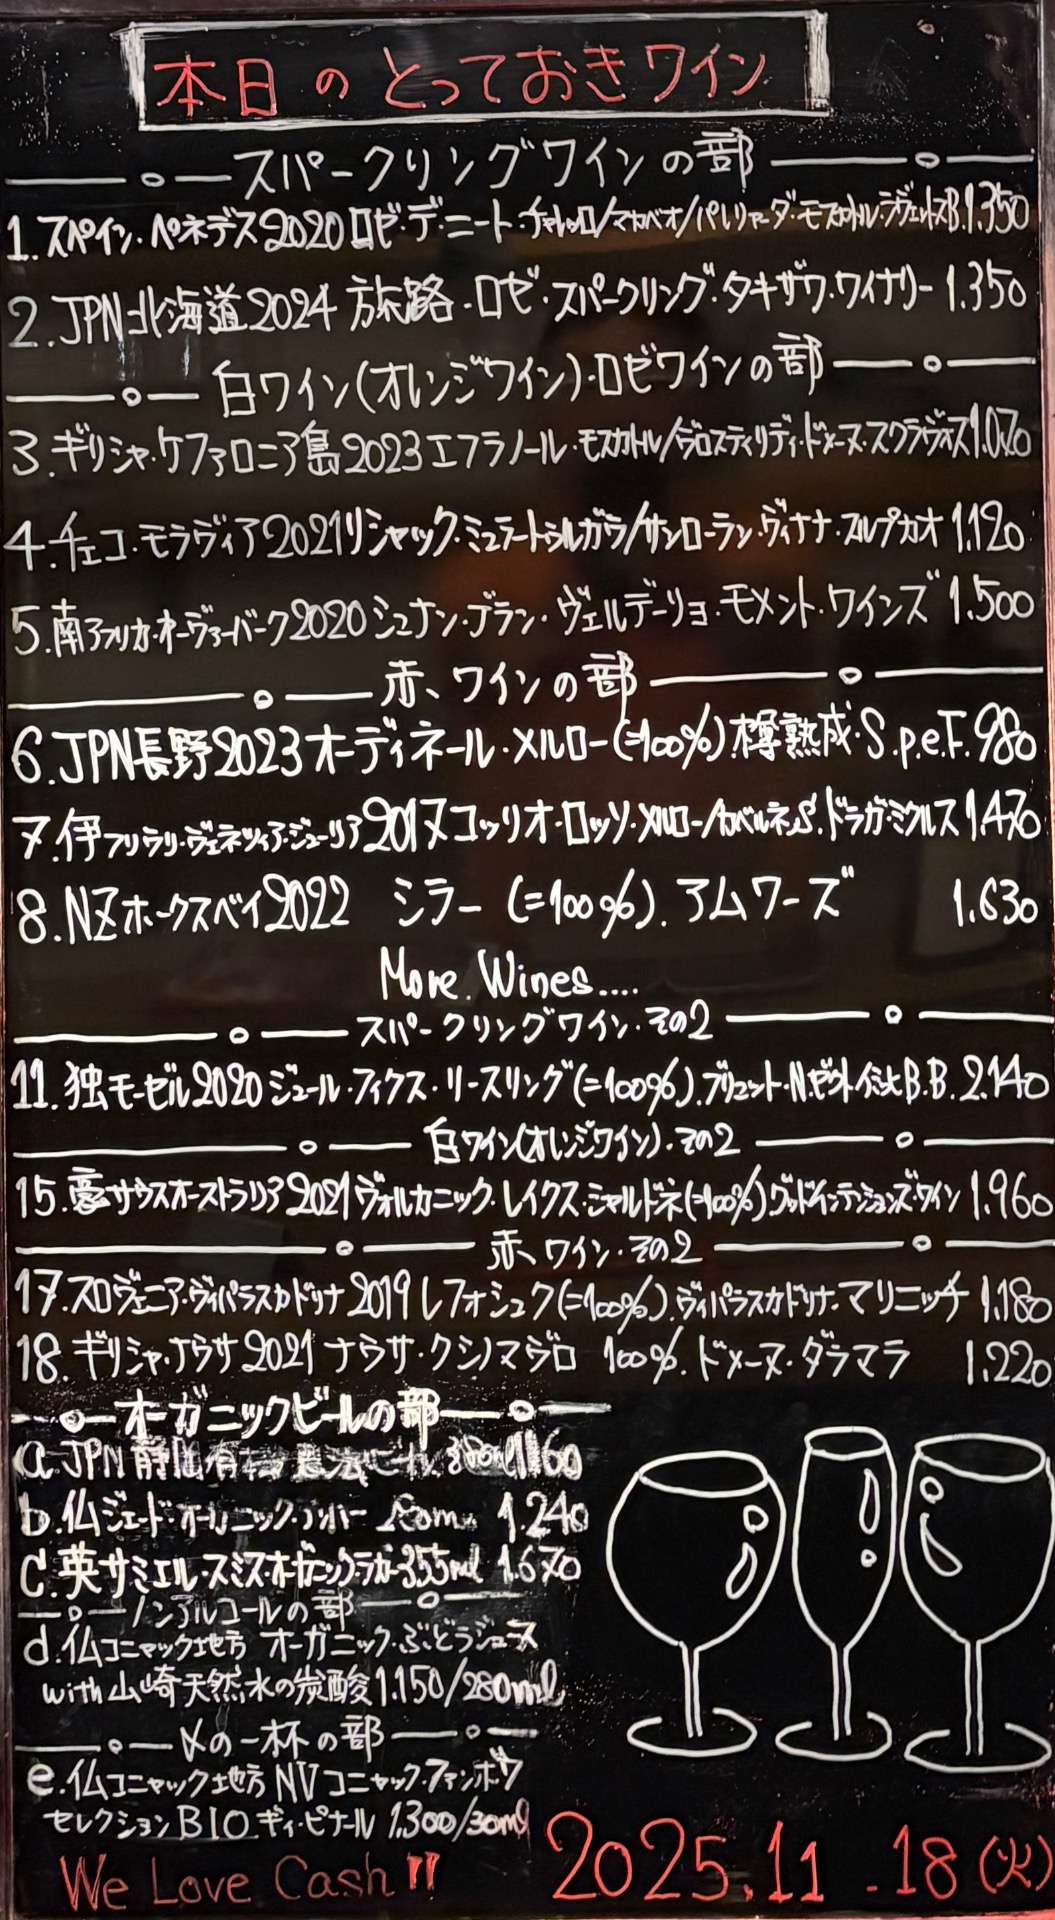 本日のとっておきワイン
スパークリングワインの部
1.スペイン・ペネデス2020ロゼ・デ・ニート・チャレッロ/マカベオ/パレリャーダ・モスカトル・ラヴェントスB.1.350
2.JPN北海道2024 旅路・ロゼ・スパークリング・タキザワ・ワイナリー 1.350
白ワイン(オレンジワイン)・ロゼワインの部
3.ギリシャ・ケファロニア島2023エフラノール・モスカトル/ヴロスティリディ・ドメーヌ・スクラヴォス1.070
4.チェコ・モラヴィア2021リシャック・ミュラートゥルガウ/サンローラン・ヴィナナ・スルプカオ 1.120
5.南アフリカ・オーヴァーバーク2020シュナン・ブラン・ヴェルデーリョ・モメント・ワインズ 1.500
赤、ワインの部
6.JPN長野2023オーディネール・メルロー(=100%).樽熟成・S.p.e.F.980
7.伊フリウリ・ヴェネツィア・ジューリア2017コッリオ・ロッソ・メルロー/カベルネ.S.ドラガ・ミクルス1.470
8.NZホークスベイ2022 シラー (=100%).アムワーズ 1.630
More Wines....
スパークリングワイン・その2
11.独モーゼル2020ジュール・フィクス・リースリング(=100%).ブリュット・N.ゼクト B.B.2.140
白ワイン(オレンジワイン)・その2
15.豪サウスオーストラリア2021ヴォルカニック・レイクス・シャルドネ(=100%).グッドインテンションズ・ワイン 1.960
赤、ワイン・その2
17.スロヴェニア・ヴィパラスカドリナ2019レフォシュク(=100%).ヴィパラスカドリナ・マリニッチ 1.180
18.ギリシャ・ナウサ2021ナウサ・クシノマヴロ 100%.ドメーヌ・ダラマラ 1.220
オーガニックビールの部
a.JPN 静岡有
b.仏ジェード・オーガニック・アンバー 1.240
c.英サミエル・スミス・オーガニック・ラガー355ml 1.670
ノンアルコールの部
d.仏コニャック地方 オーガニック・ぶどうジュース
with山崎天然水の炭酸1.150/280ml
〆の一杯の部
e.仏コニャック地方NVコニャック・ファンボワ
セレクションBIO ギィ・ピナール 1.300/30ml
We Love Cash!!
2025.11.18(火)